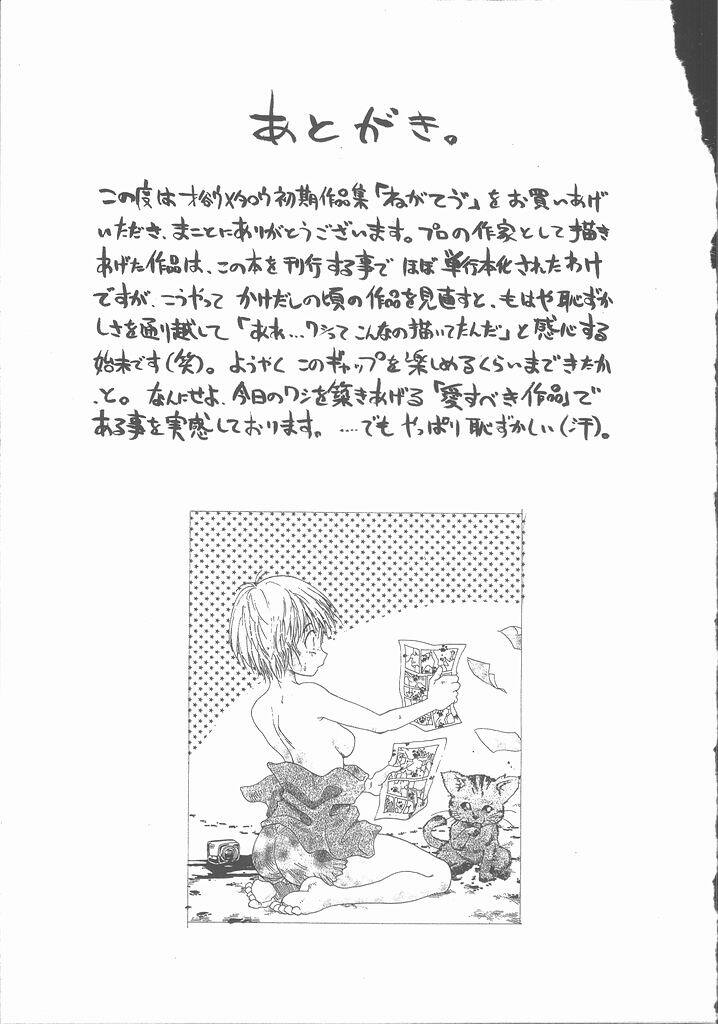 あとがき。
この度は才谷ウメタロウ初期作品集「ねがてぃう゛」をお買いあげ
いただき、まことにありがとうございます。プロの作家として描き
あげた作品は、この本を刊行する事でほぼ単行本化されたわけ
ですが、こうやってかけだしの頃の作品を見直すと、もはや恥ずか
しさを通り越して「あれ…ワシってこんなの描いてたんだ」と感心する
始末です(笑)。ようやくこのギャップを楽しめるくらいまできたか
、と。なんにせよ、今日のワシを築きあげる「愛すべき作品」で
ある事を実感しております。‥‥でもやっぱり恥ずかしい(汗)。